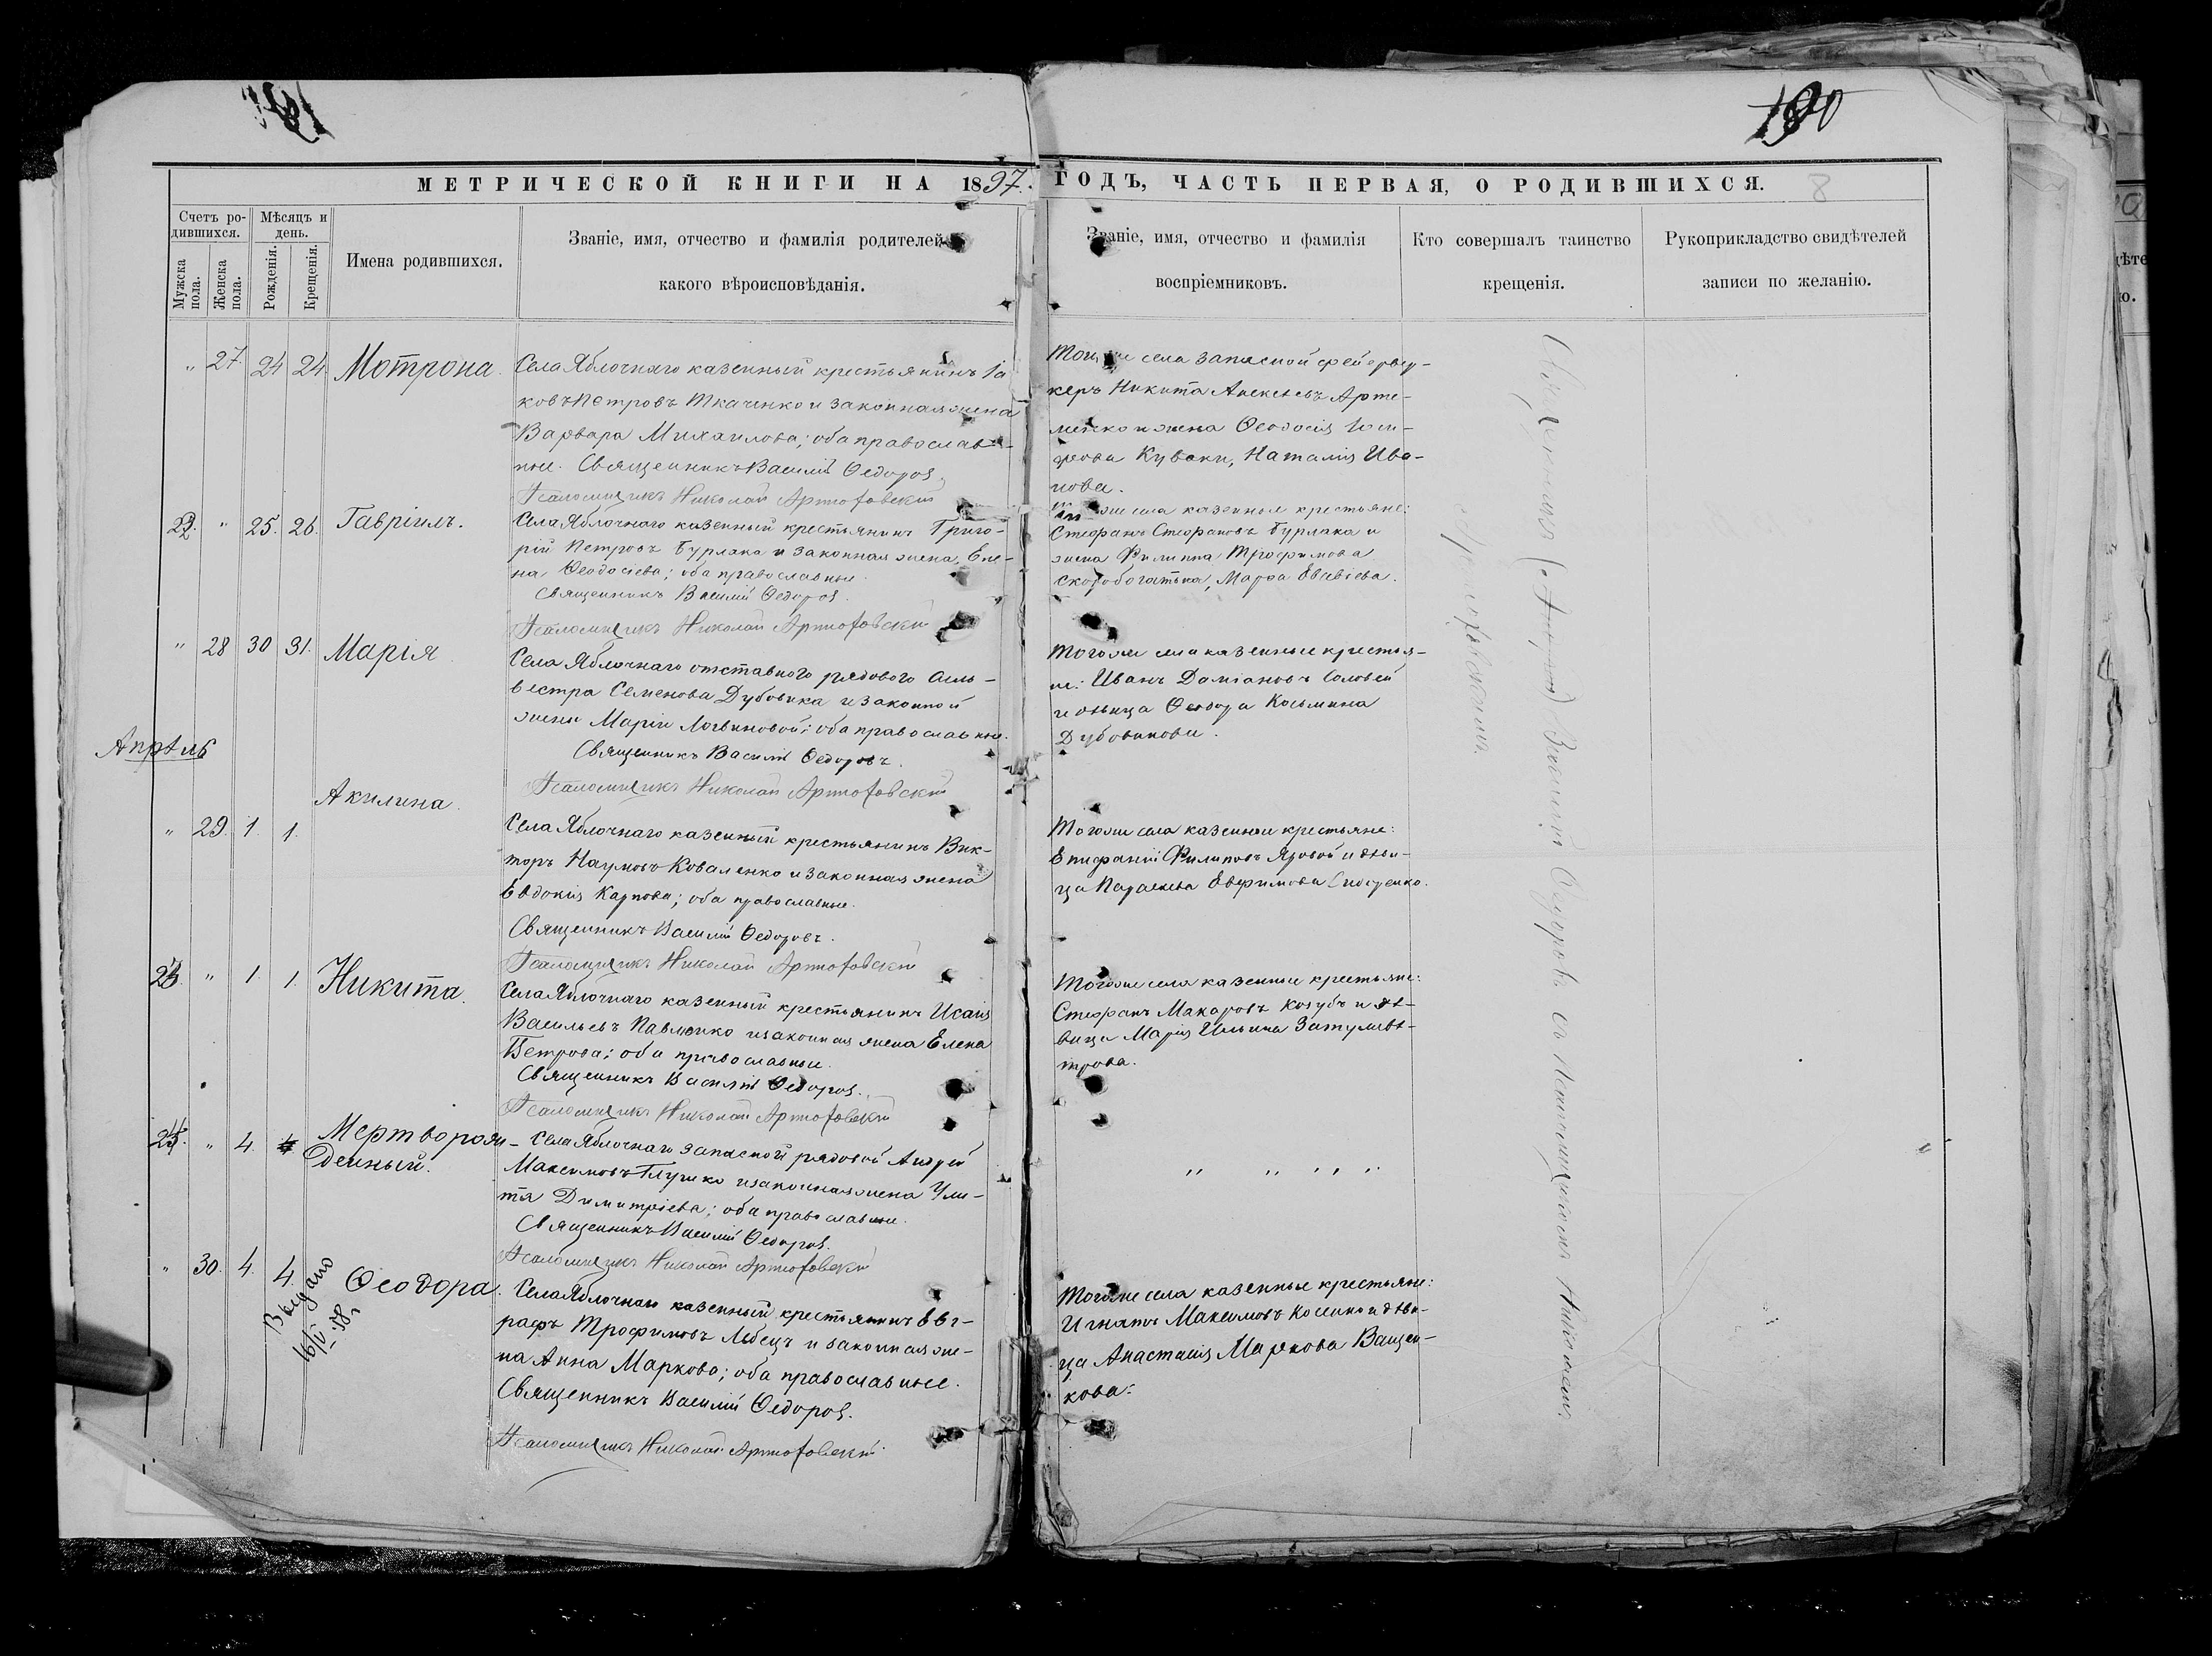 190
МЕТРИЧЕСКОЙ КНИГИ НА 1897.
ГОДЪ, ЧАСТЬ ПЕРВАЯ, О РОДИВШИХСЯ.
8
Счетъ ро-
дившихся.
Мѣсяцъ и
день.
Мужска
пола.
Женска
пола.
Рожденія.
Крещенія.
Имена родившихся.
Званіе, имя, отчество и фамилія родителей
какого вѣроисповѣданія.
Званіе, имя, отчество и фамилія
воспріемниковъ.
Кто совершалъ таинство
крещенія.
Рукоприкладство свидѣтелей
записи по желанію.
" 27. 24 24 Мотрона.
Села Яблочнаго казенный крестьянинъ Іа
ковъ Петровъ Ткаченко и законная жена
Варвара Михаилова; оба православ-
ные. Священникъ Василій Ѳедоровъ.
Псаломщикъ Николай
Тогоже села запасной фейервер-
керъ Никита Алексѣевъ Арте-
менко и жена Ѳеодосія Іоси-
фова Куваки, Наталія Ива-
нова.
22. " 25. 26. Гавріилъ.
Села Яблочнаго казенный крестьянинъ Григо-
рій Петровъ Бурлака и законная жена Еле-
на Ѳеодосіева; оба православные.
Священникъ Василій Ѳедоровъ.
Псаломщикъ Николай
же села казенные крестьяне:
Стефанъ Стефановъ Бурлака и
жена Филиппа Трофимова
Скоробогатька, Марѳа Евсевіева.
" 28 30 31. Марія
Села Яблочнаго отставного рядового Силь-
вестра Семенова Дубовика и законной
жены Маріи Логвиновой; оба православные.
Священникъ Василій Ѳедоровъ.
Псаломщикъ Николай
Тогоже села казенные крестья-
не: Иванъ Даміановъ Соловей
и дѣвица Ѳеодора Косьмина
Дубовикова.
Апрѣль
" 29. 1. 1. Акилина.
Села Яблочнаго казенный крестьянинъ Вик-
торъ Наумовъ Коваленко и законная жена
Евдокія Карпова; оба православные.
Священникъ Василій Ѳедоровъ.
Псаломщикъ Николай
Тогоже села казенные крестьяне:
Епифаній Филиповъ Яровой и дѣви-
ца Параскева Евфимова
23. " 1. 1. Никита.
Села Яблочнаго казенный крестьянинъ Исаія
Васильевъ Павленко и законная жена Елена
Петрова; оба православные.
Священникъ Василій Ѳедоровъ.
Псаломщикъ Николай
Тогоже села казенные крестьяне:
Стефанъ Макаровъ Козубъ и дѣ-
вица Марія Ильина Затуливѣ-
трова.
24. " 4. Мертворож-
денный.
Села Яблочнаго запасной рядовой Андрей
Максимовъ Глушко и законная жена Ули-
та Димитріева; оба православные.
Священникъ Василій Ѳедоровъ.
Псаломщикъ Николай
" " " "
" 30. 4. 4. Ѳеодора.
Выдано
16/IV 58г
Села Яблочнаго казенный крестьянинъ Евг-
рафъ Трофимовъ Швецъ и законная же-
на Анна Маркова; оба православные.
Священникъ Василій Ѳедоровъ.
Псаломщикъ Николай
Тогоже села казенные крестьяне:
Игнатъ Максимовъ Косенко и дѣви-
ца Анастасія Маркова Ващен-
кова.
Василій Ѳедоровъ съ Псаломщикомъ Николаемъ